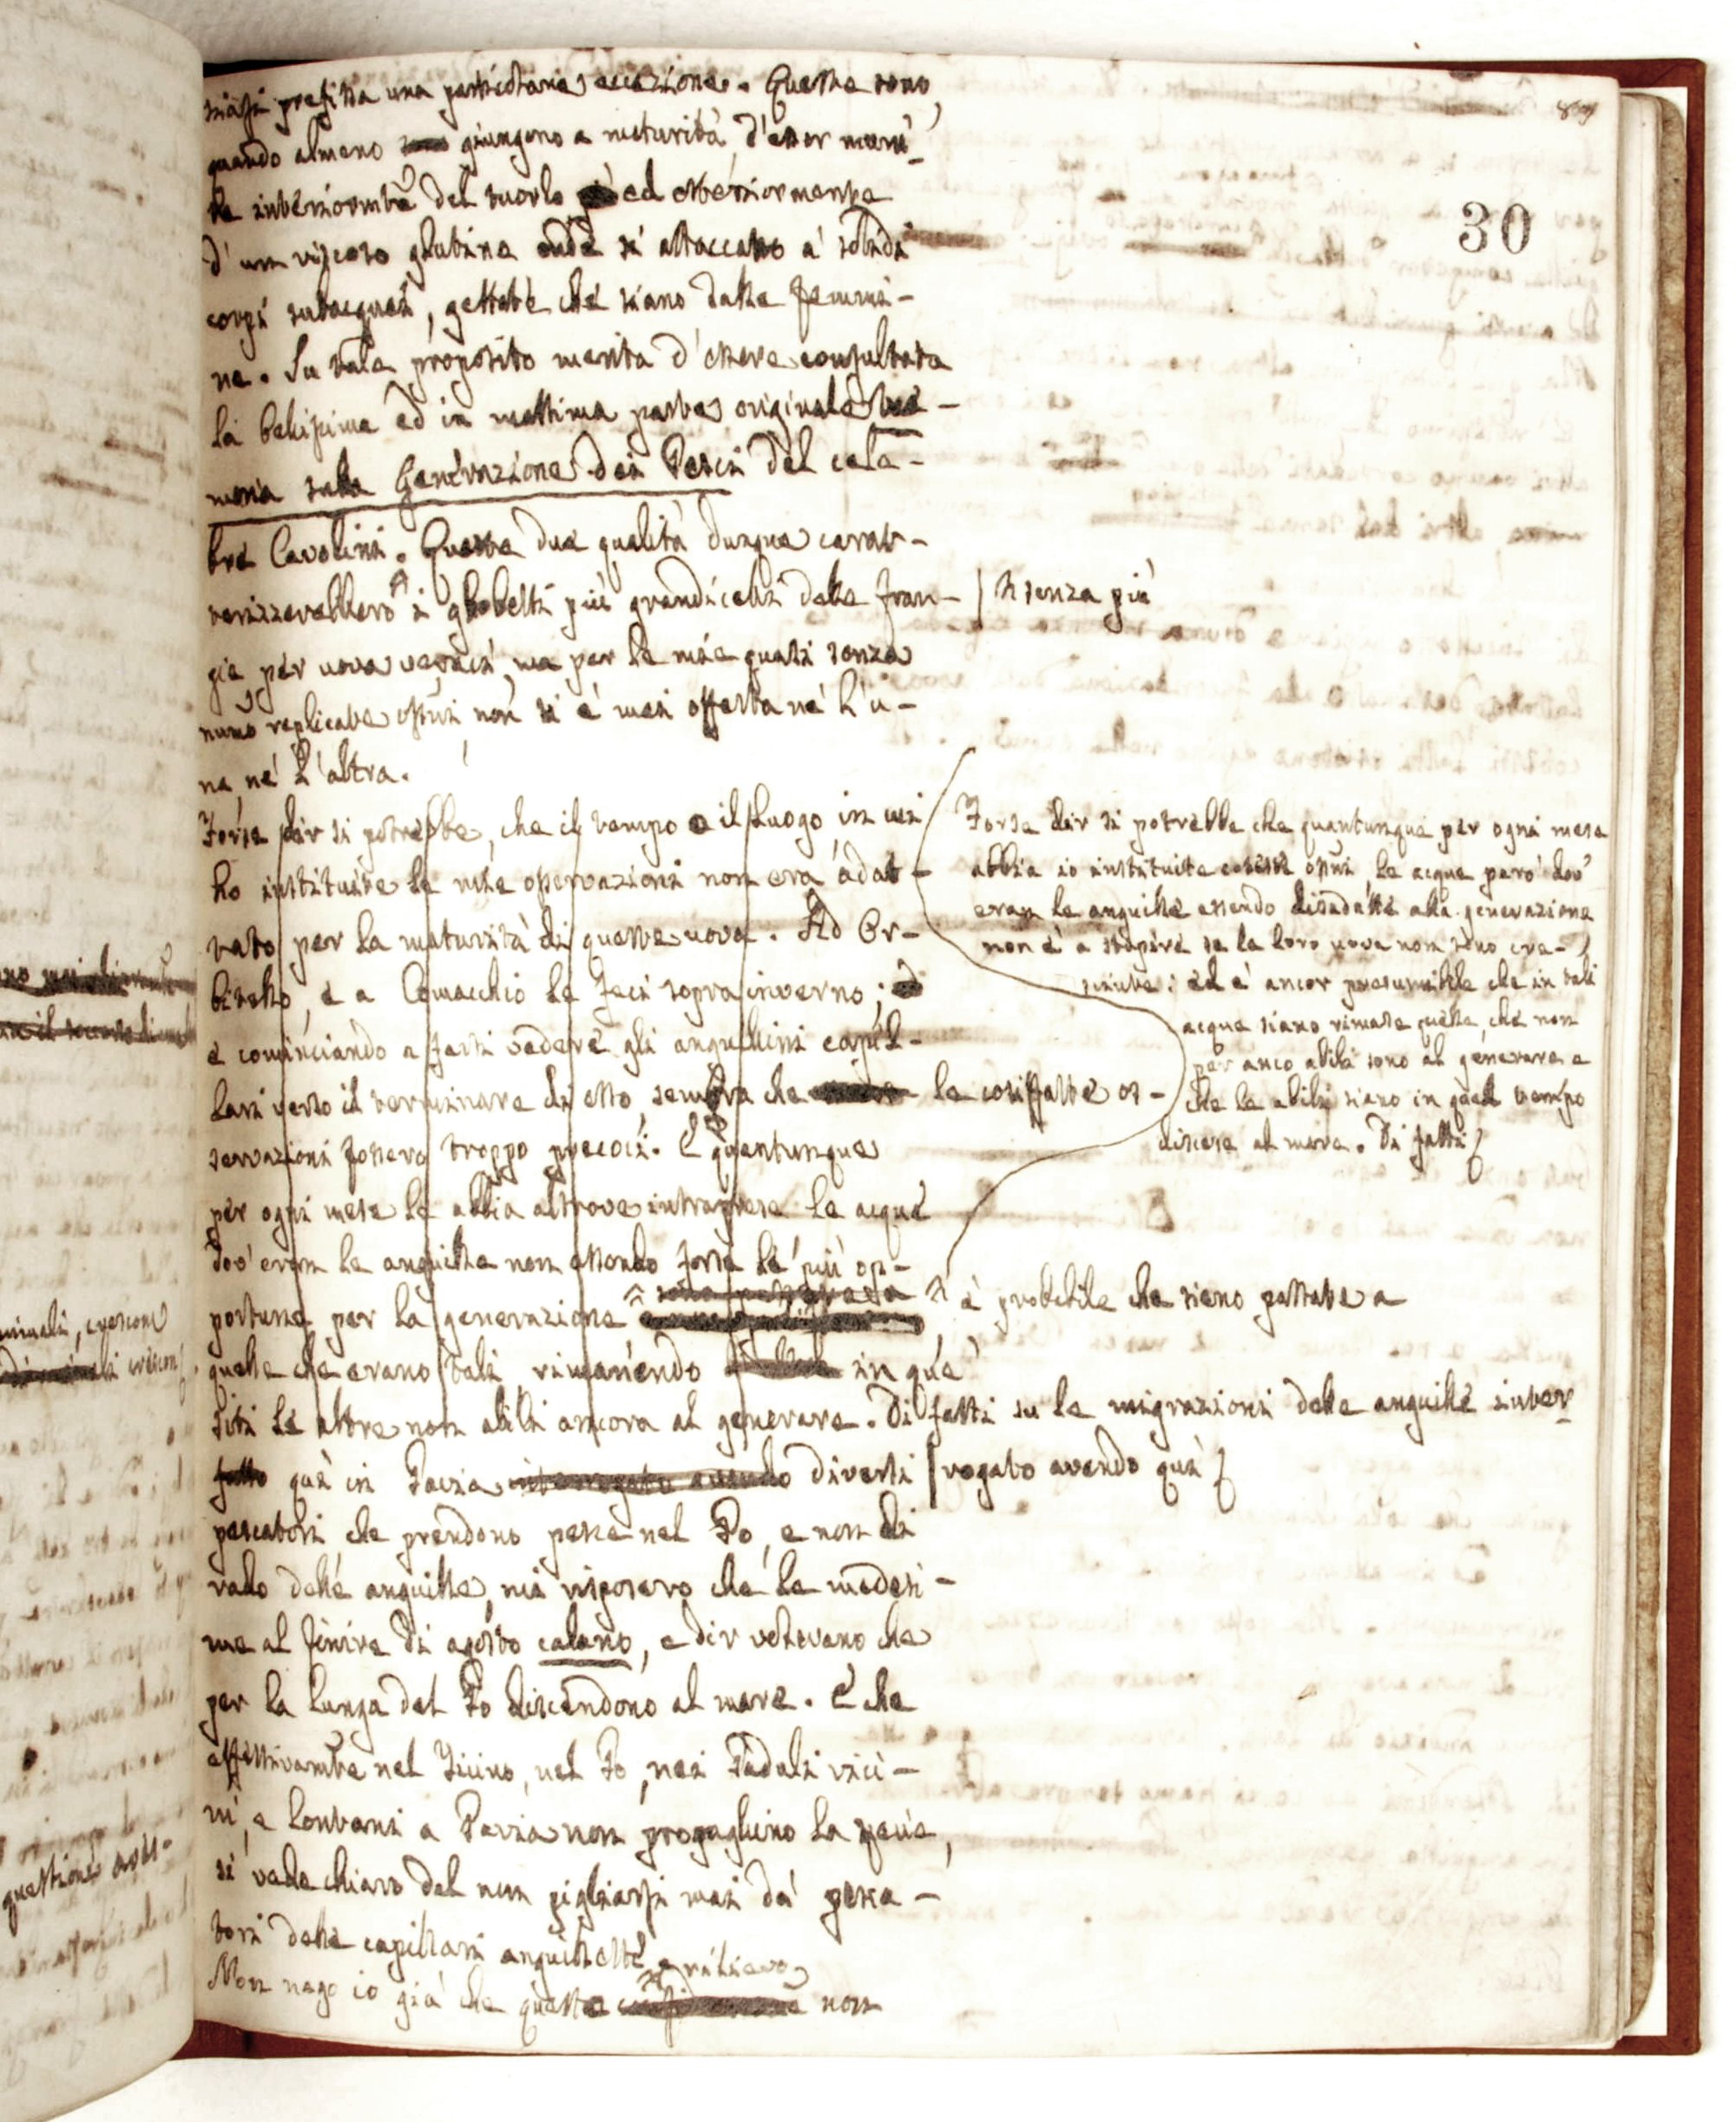 30
siasi prefissa una particolare eccezione. Queste sono,
quando almeno giungono a maturità, d'esser muni-
te interiormte del tuorlo ed esteriormente
d'un viscoso glutine onde si attaccano a' solidi
corpi subacquei, gettate che siano dalle femmi-
ne. Su tale proposito merita d'essere consultata
la bellissima ed in massima parte originale me-
moria sulla Generazione dei Pesci del cele-
bre Cavolini. Queste due qualità dunque carat-
terizzerebbero i globetti più grandicelli delle fran-
senza più
gie per uova veraci, ma per le mie quasi senza
numo replicate ossni non si è mai offerta nè l'u-
na, nè l'altra.
Forse dir si potrebbe, che il tempo e il luogo, in cui
ho instituite le mie osservazioni non era adat-
tato per la maturità di queste uova. Ad Or-
bitello, e a Comacchio le feci sopra inverno;
e cominciando a farsi vedere gli anguillini capil-
lari verso il terminare di esso, sembra che le cosiffatte os-
servazioni fossero troppo precoci. E quantunque
per ogni mese le abbia altrove intraprese le acque
dov'eran le anguille non essendo forse le più op-
portune per la generazione
è probabile che sieno passate a
quelle che erano tali, rimanendo in que'
siti le altre non abili ancora al generare. Di fatti su le migrazioni delle anguille inter
Forse dir si potrebbe che quantunque per ogni mese
abbia io instituite coteste ossni, le acque però dov'
eran le anguille essendo disadatte alla generazione
non è a stupire se la loro uova non sono cre-
sciute: ed è ancor presumibile che in tali
acque siano rimase quelle, che non
per anco abili sono al generare e
che le abili siano in quel tempo
discese al mare. Di fatti
fatto quì in Pavia interrogato avendo diversi
rogato avendo quì
pescatori che prendono pesce nel Po, e non di
rado delle anguille, mi risposero che le medesi-
me al finire di agosto calano, e dir volevano che
per la lunga del Po discendono al mare. E che
effettivamte nel Ticino, nel Po, nei Paduli vici-
ni, e lontani a Pavia non propaghino la specie,
si vede chiaro dal non pigliarsi mai da' pesca-
tori delle capillari anguillette
Non nego io già che queste non